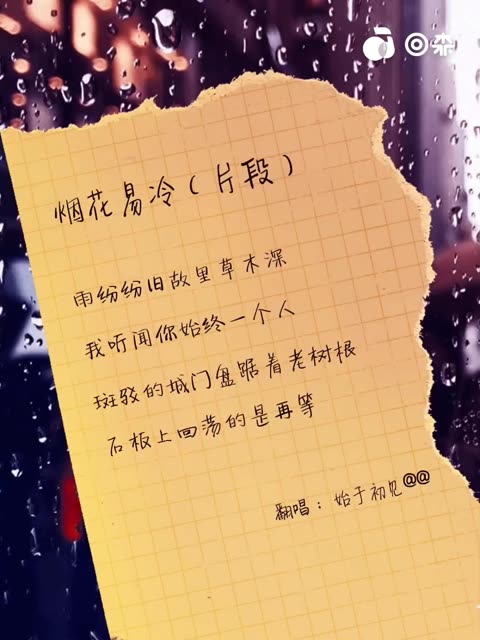 ◎森
烟花易冷（片段）
雨纷纷旧故里草木深
我听闻你始终一个人
斑驳的城门盘踞着老树根
石板上回荡的是再等
翻唱：始于初见@@